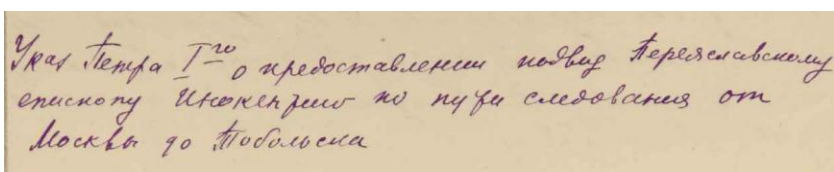 Указ Петра I-го о предоставлении подвод Переяславскому
епископу Инокентию по пути следования от
Москвы до Тобольска